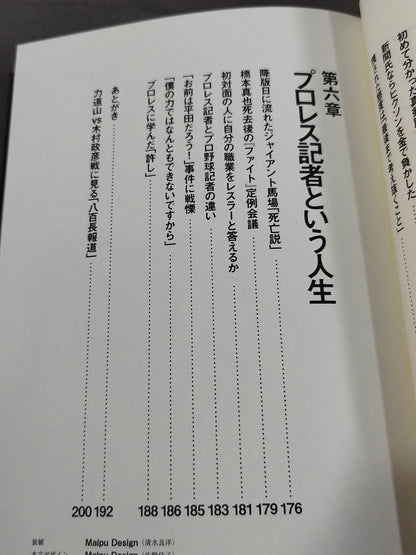 初めて分かった
新間氏ならヒクソンを金で負かした
第六章
プロレス記者という人生
降版日に流れたジャイアント馬場「死亡説」 176
橋本真也死去後の「ファイト」定例会議 179
初対面の人に自分の職業をレスラーと答えるか 181
プロレス記者とプロ野球記者の違い 183
「お前は平田だろう！」事件に戦慄 185
「僕の力ではなんともできないですから」 186
プロレスに学んだ「許し」 188
あとがき 192
力道山 vs 木村政彦戦に見る「八百長報道」 200
装幀 Malpu Design（清水良洋）
本文デザイン Malpu Design（佐野佳子）